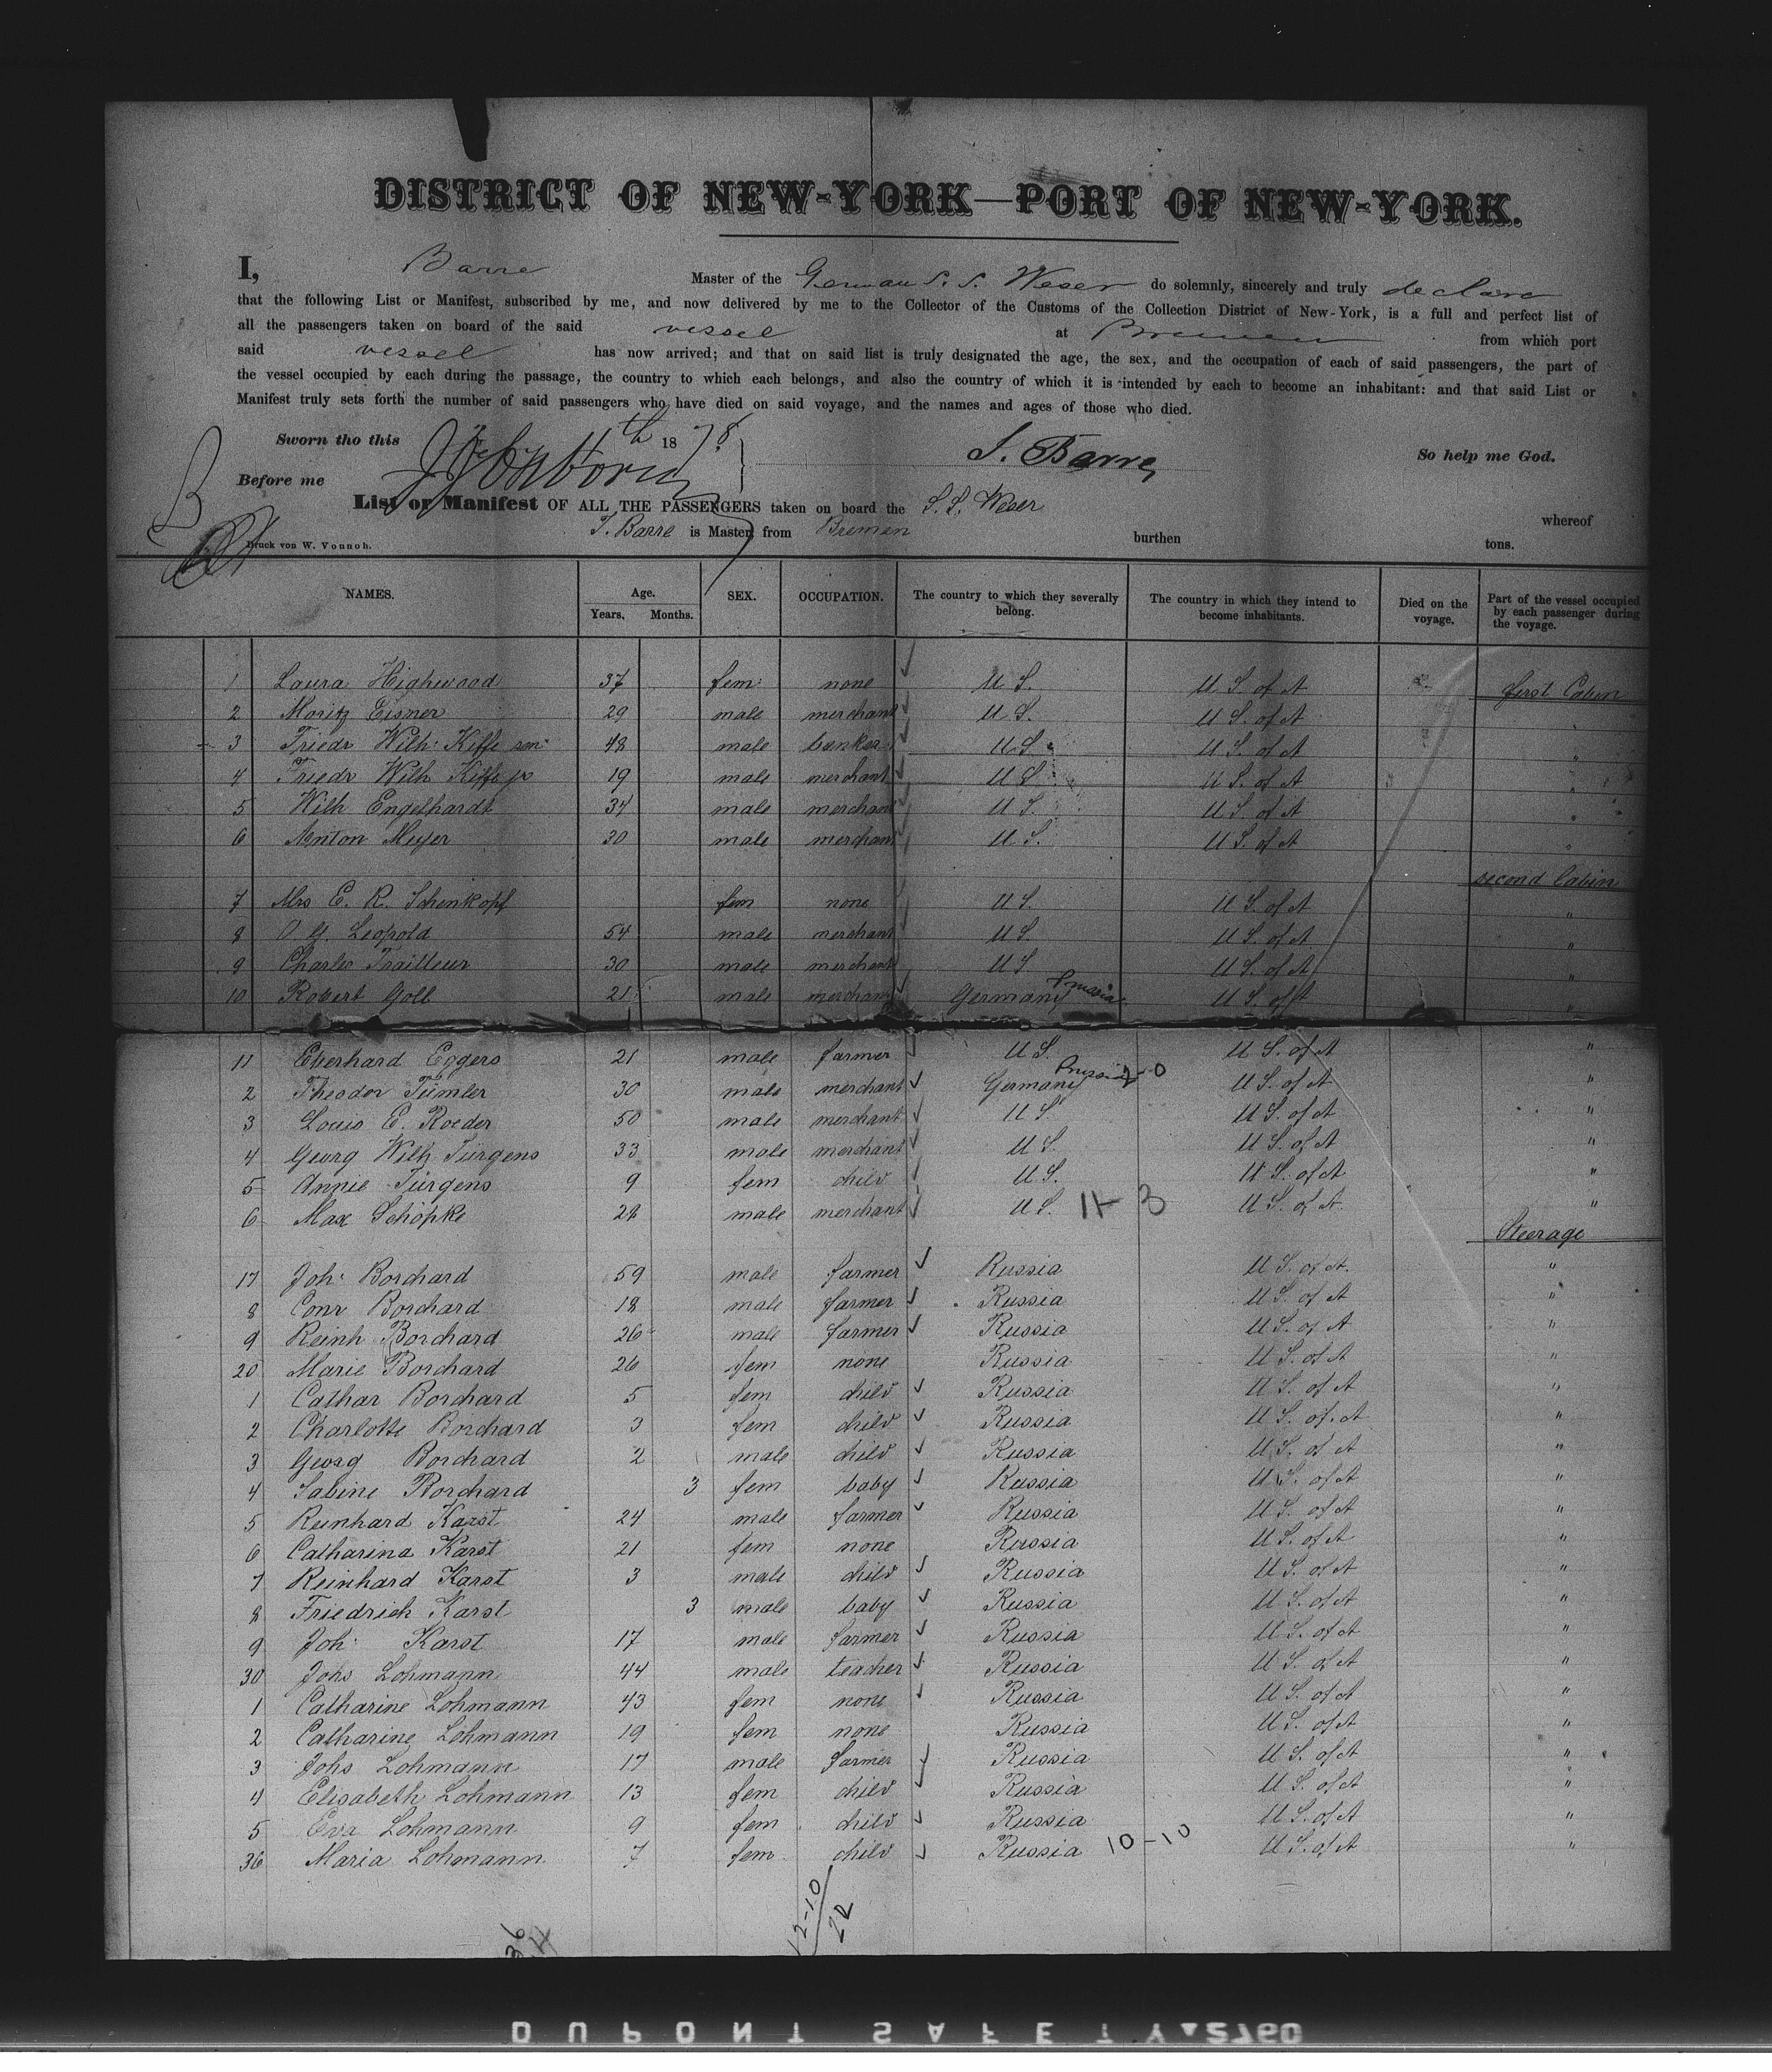 DISTRICT OF NEW-YORK—PORT OF NEW-YORK.
I, Barre Master of the German S. S. Weser do solemnly, sincerely and truly declare
that the following List or Manifest, subscribed by me, and now delivered by me to the Collector of the Customs of the Collection District of New-York, is a full and perfect list of
all the passengers taken on board of the said vessel at Bremen from which port
said vessel has now arrived; and that on said list is truly designated the age, the sex, and the occupation of each of said passengers, the part of
the vessel occupied by each during the passage, the country to which each belongs, and also the country of which it is intended by each to become an inhabitant: and that said List or
Manifest truly sets forth the number of said passengers who have died on said voyage, and the names and ages of those who died.
Sworn tho this th 1878 S. Barre So help me God.
Before me
List or Manifest OF ALL THE PASSENGERS taken on board the S.S. Weser whereof
Barre is Master, from Bremen burthen tons.
Druck von W. Vonnoh.
NAMES. Age. Years. Months. SEX. OCCUPATION. The country to which they severally belong. The country in which they intend to become inhabitants. Died on the voyage. Part of the vessel occupied by each passenger during the voyage.
1 Laura Highwood 37 fem: none U S. U S. of A first Cabin
2 Moritz Eisner 29 male merchant U S. U S. of A "
3 Friedr Wilh: Kiffe sen: 48 male banker U S. U S. of A "
4 Friedr Wilh Kiffe jr 19 male merchant U S. U S. of A "
5 Wilh Engelhardt 34 male merchant U S. U S. of A "
6 Anton Meyer 30 male merchant U S. U S. of A "
second Cabin
7 Mrs E. R. Schenkopf fem none U S. U S. of A "
8 O G. Leopold 54 male merchant U S. U S. of A "
9 Charles Trailleur 30 male merchant U S U S. of A "
10 Robert Goll 21 male merchant Germany Prussia U S. of A "
11 Eberhard Eggers 21 male farmer U S. U S. of A "
2 Theodor Tümler 30 male merchant Germany Prussia 2-0 U S. of A "
3 Louis E. Roeder 50 male merchant U S. U S. of A "
4 Georg Wilh Jürgens 33 male merchant U S. U S. of A "
5 Annie Jürgens 9 fem child U S. U S. of A "
6 Max Schöpke 24 male merchant U S. 11-3 U S. of A "
Steerage
17 Joh: Borchard 59 male farmer Russia U S. of A. "
8 Conr Borchard 18 male farmer Russia U S. of A "
9 Reinh Borchard 26 male farmer Russia U S. of A "
20 Marie Borchard 26 fem none Russia U S. of A "
1 Cathar Borchard 5 fem child Russia U S. of A "
2 Charlotte Borchard 3 fem child Russia U S. of A "
3 Georg Borchard 2 male child Russia U S. of A "
4 Sabine Borchard 3 fem baby Russia U S. of A "
5 Reinhard Karst 24 male farmer Russia U S. of A "
6 Catharina Karst 21 fem none Russia U S. of A "
7 Reinhard Karst 3 male child Russia U S. of A "
8 Friedrich Karst 3 male baby Russia U S. of A "
9 Joh: Karst 17 male farmer Russia U S. of A "
30 Johs Lohmann 44 male teacher Russia U S. of A "
1 Catharine Lohmann 43 fem none Russia U S. of A "
2 Catharine Lohmann 19 fem none Russia U S. of A "
3 Johs Lohmann 17 male farmer Russia U S. of A "
4 Elisabeth Lohmann 13 fem child Russia U S. of A "
5 Eva Lohmann 9 fem child Russia U S. of A "
36 Maria Lohmann 7 fem child Russia 10-10 U S. of A "
12-10
22
36
DUPONT SAFETY 2760